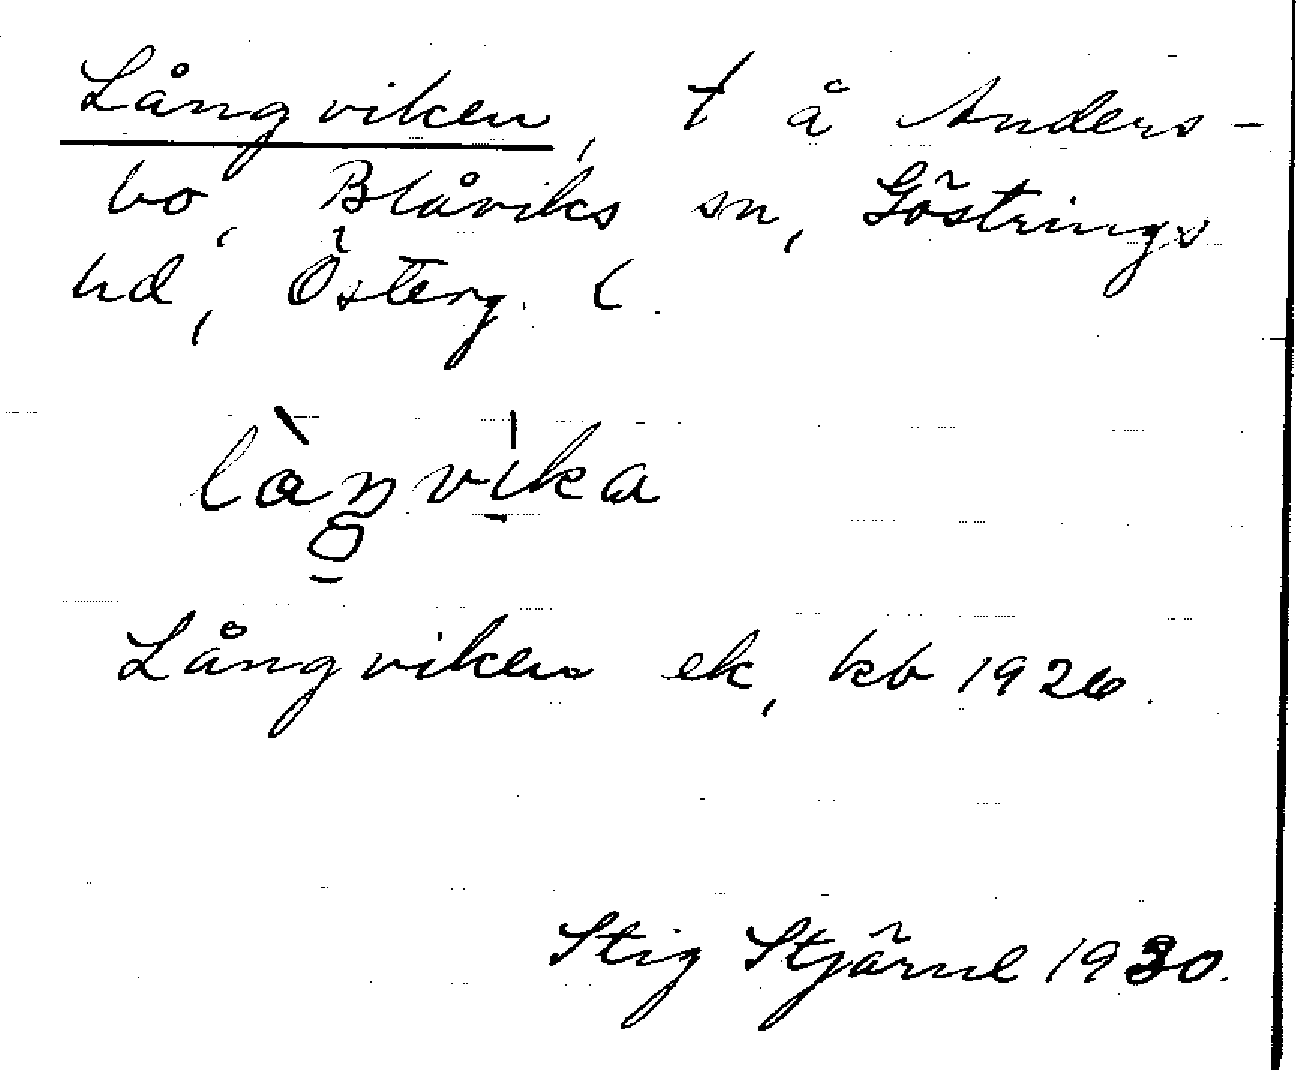 Långviken, t å Anders-
bo, Blåviks sn, Göstrings
hd, Österg. l.
làŋvika
Långviken ek, kb 1926.
Stig Stjärne 1930.